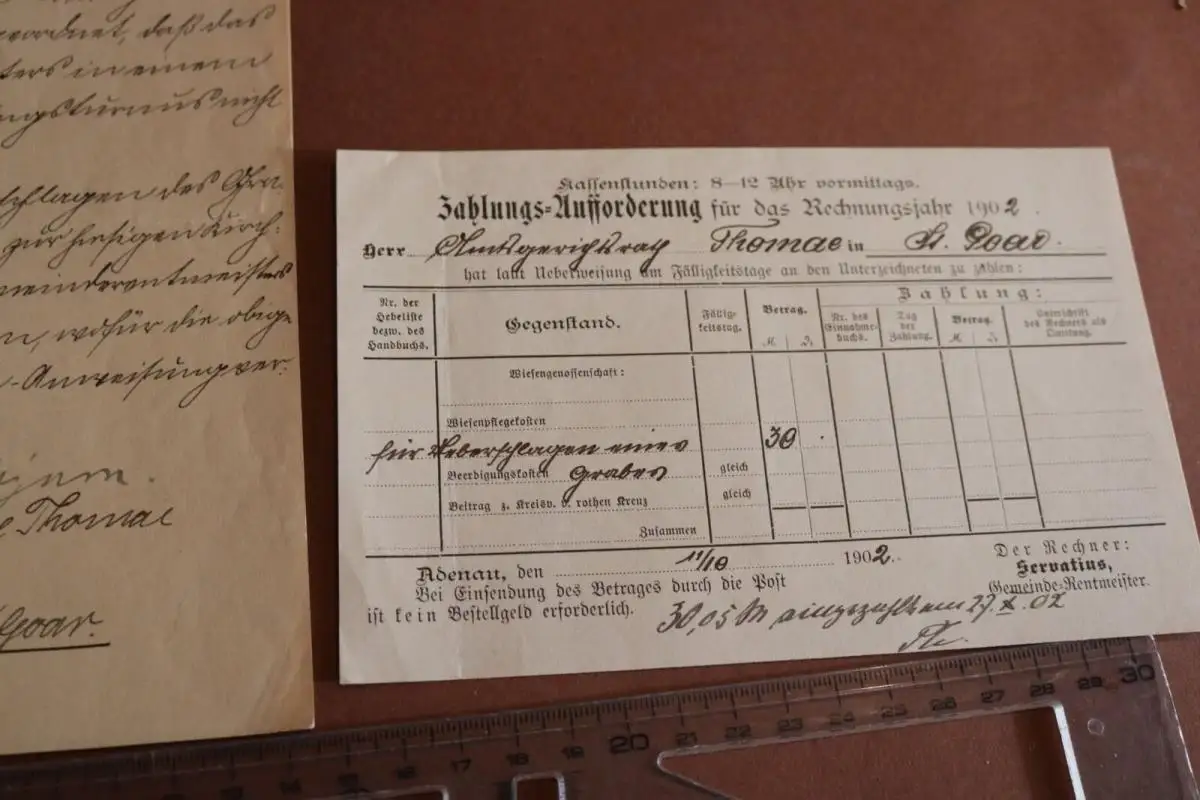 geordnet, daß das
ters in einem
ngsturnus nicht
schlagen des Gra-
zur hiesigen Kirch-
meinderentmeisters
n, wofür die obige
-Anweisung ver-
Thomae
Goar.
Kassenstunden: 8–12 Uhr vormittags.
Zahlungs-Aufforderung für das Rechnungsjahr 1902.
Herr Amtsgerichtsrath Thomae in St. Goar.
hat laut Ueberweisung am Fälligkeitstage an den Unterzeichneten zu zahlen:
Nr. der Hebeliste bezw. des Handbuchs.
Gegenstand.
Fälligkeitstag.
Betrag.
M. D.
Zahlung:
Nr. des Einnahmebuchs.
Tag der Zahlung.
Betrag.
M. D.
Unterschrift des Rechners als Quittung.
Wiesengenossenschaft:
Wiesenpflegekosten
für Ueberschlagen eines
30 .
Beerdigungskosten Grabes gleich
Beitrag z. Kreisv. v. rothen Kreuz gleich
Zusammen
Adenau, den 11/10 1902.
Der Rechner:
Servatius,
Gemeinde-Rentmeister.
Bei Einsendung des Betrages durch die Post
ist kein Bestellgeld erforderlich.
30,05 M eingezahlt am 27. X. 02
Th.
17 18 19 20 21 22 23 24 25 26 27 28 29 30